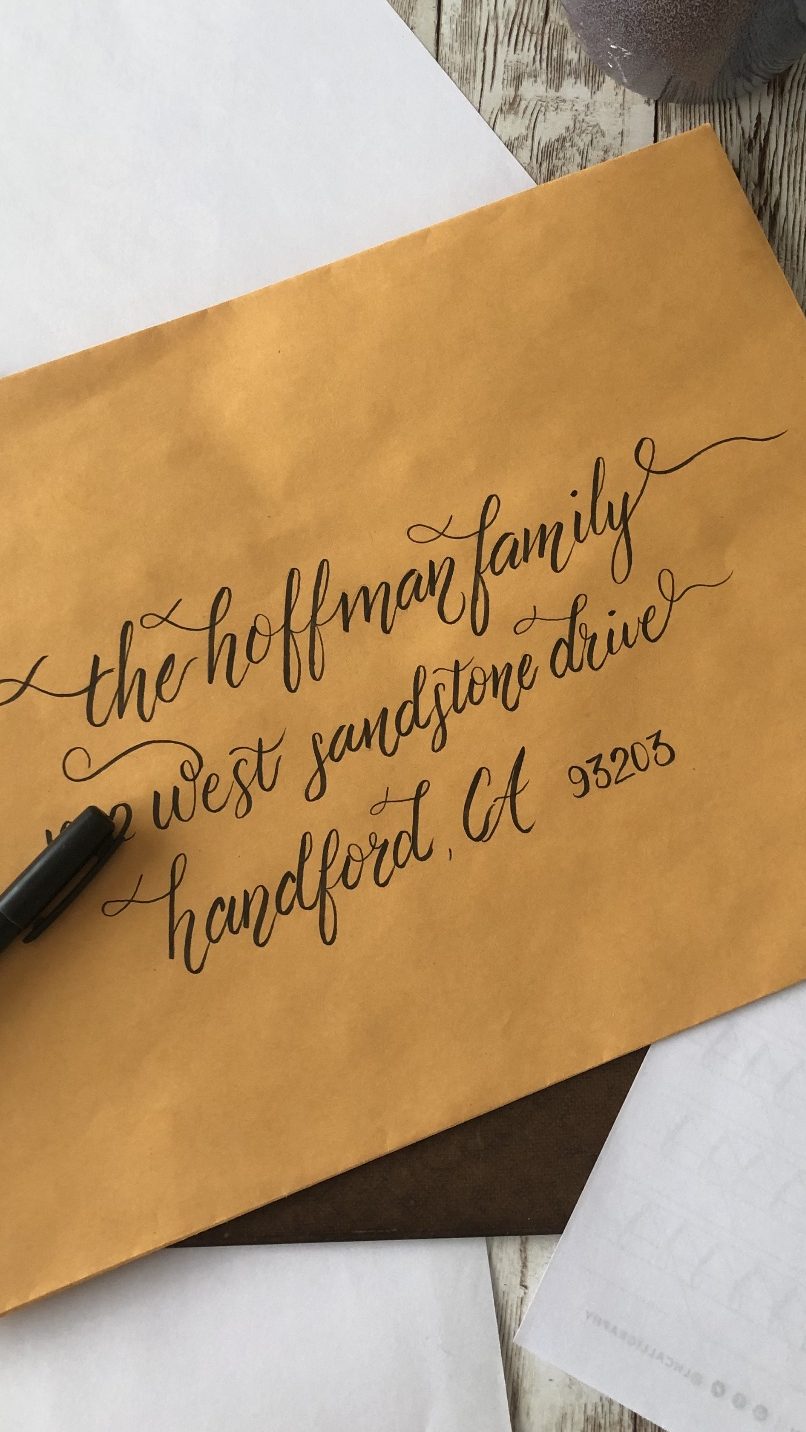 the hoffman family
west sandstone drive
handford, CA 93203
@LHCALLIGRAPHY